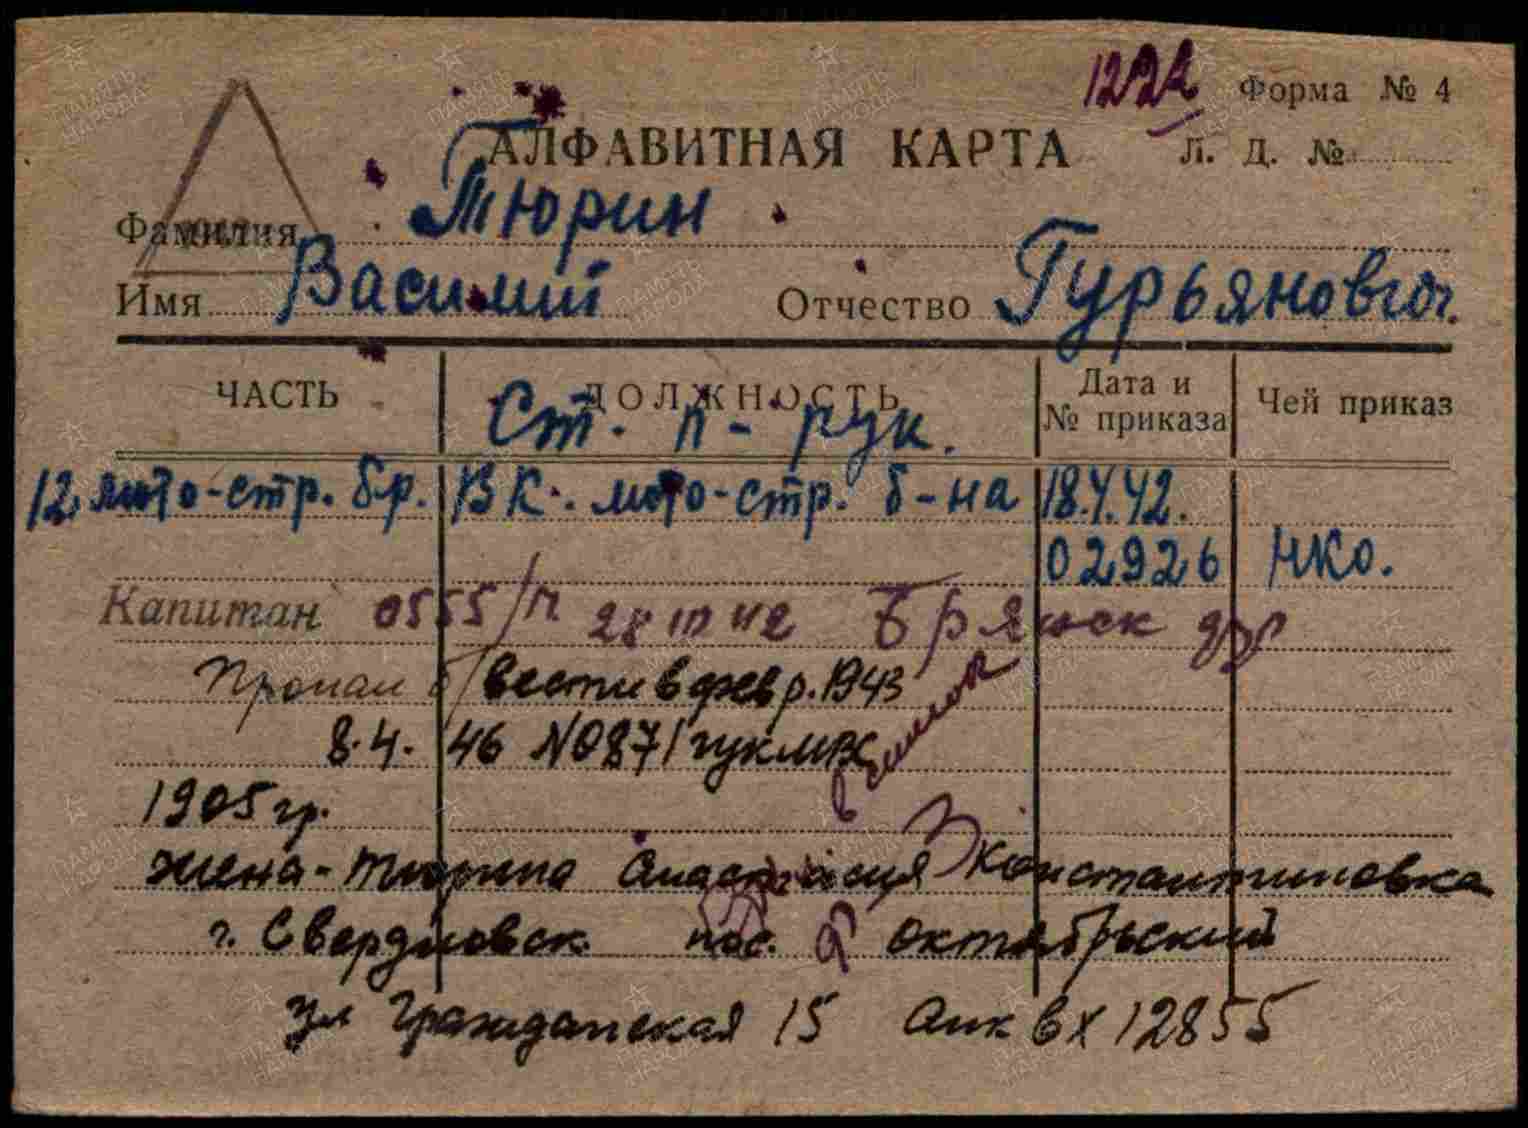 1222 Форма № 4
АЛФАВИТНАЯ КАРТА Л. Д. №
Фамилия Тюрин
Имя Василий Отчество Гурьянович.
ЧАСТЬ ДОЛЖНОСТЬ Дата и № приказа Чей приказ
Ст. п-рук.
12 мото-стр. бр. ВК. мото-стр. б-на 18.4.42.
02926 НКО.
Капитан 0555/п 28 III 42 Брянск фр
Пропал б/вести в февр. 1943
8.4.46 № 0871 гук МВС
1905 гр.
жена - Тюрина Анастасия Константиновна
г. Свердловск. пос. Октябрьский
ул Гражданская 15 Анк вх 12855
ПАМЯТЬ НАРОДА